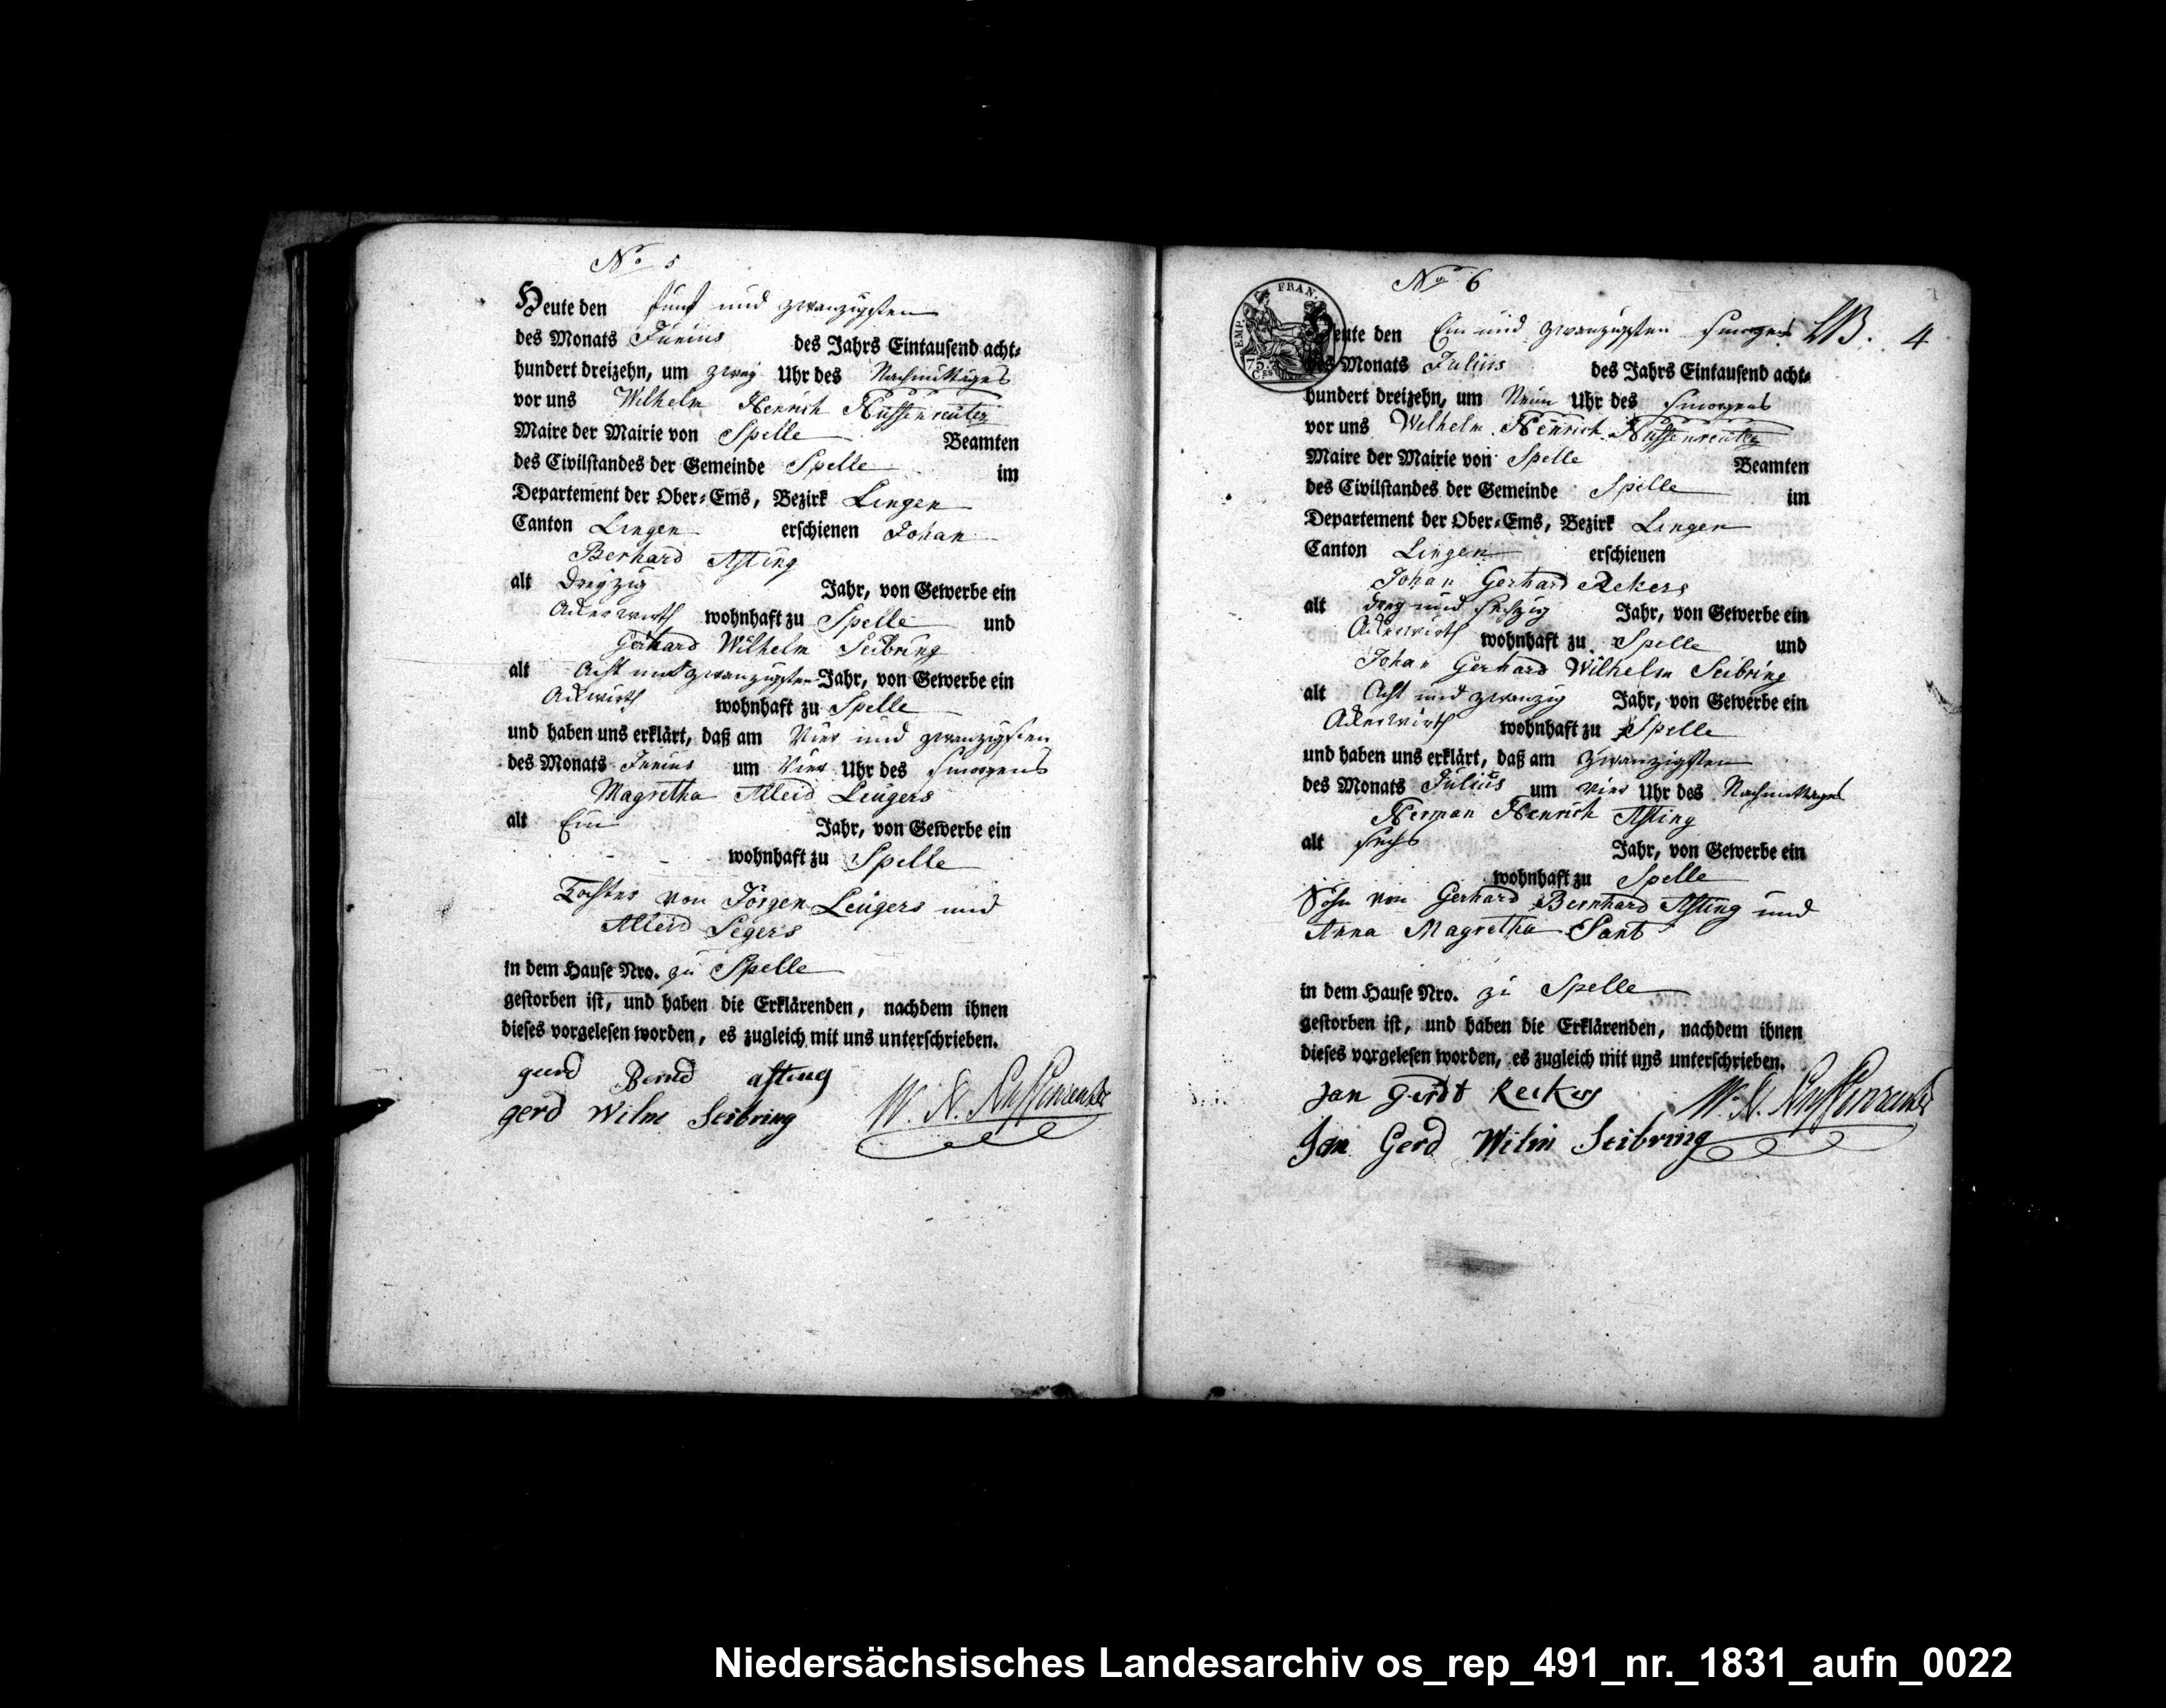 No 5
Heute den fünf und zwanzigsten
des Monats Junius des Jahrs Eintausend acht-
hundert dreizehn, um zwey Uhr des Nachmittages
vor uns Wilhelm Henrich Hüssenreuter
Maire der Mairie von Spelle Beamten
des Civilstandes der Gemeinde Spelle im
Departement der Ober-Ems, Bezirk Lingen
Canton Lingen erschienen Johan
Berhard Asting
alt Dreyzig Jahr, von Gewerbe ein
Ackerwirth wohnhaft zu Spelle und
Gerhard Wilhelm Seibring
alt Acht und zwanzigsten Jahr, von Gewerbe ein
Ackwirth wohnhaft zu Spelle
und haben uns erklärt, daß am Vier und zwanzigsten
des Monats Junius um Vier Uhr des smorgens
Magretha Alleid Leugers
alt Ein Jahr, von Gewerbe ein
wohnhaft zu Spelle
Tochter von Jörgen Leugers und
Alleid Segers
in dem Hause Nro. zu Spelle
gestorben ist, und haben die Erklärenden, nachdem ihnen
dieses vorgelesen worden, es zugleich mit uns unterschrieben.
gerd Bernd asting
gerd Wilm Seibring W. H. Hüssenreuter
No 6
EMP. FRAN.
75 CES
4
Heute den Ein und zwanzigsten smorgens
des Monats Julius des Jahrs Eintausend acht-
hundert dreizehn, um Neun Uhr des smorgens
vor uns Wilhelm Henrich Hüssenreuter
Maire der Mairie von Spelle Beamten
des Civilstandes der Gemeinde Spelle im
Departement der Ober-Ems, Bezirk Lingen
Canton Lingen erschienen
Johan Gerhard Rekers
alt drey und sechzig Jahr, von Gewerbe ein
Ackerwirth wohnhaft zu Spelle und
Johan Gerhard Wilhelm Seibring
alt Acht und zwanzig Jahr, von Gewerbe ein
Ackerwirth wohnhaft zu Spelle
und haben uns erklärt, daß am zwanzigsten
des Monats Julius um vier Uhr des Nachmittages
Herman Henrich Asting
alt sechs Jahr, von Gewerbe ein
wohnhaft zu Spelle
Sohn von Gerhard Bernhard Asting und
Anna Magretha Sant
in dem Hause Nro. zu Spelle
gestorben ist, und haben die Erklärenden, nachdem ihnen
dieses vorgelesen worden, es zugleich mit uns unterschrieben.
Jan gerdt Reekers W. H. Hüssenreuter
Jan Gerd Wilm Seibring
Niedersächsisches Landesarchiv os_rep_491_nr._1831_aufn_0022